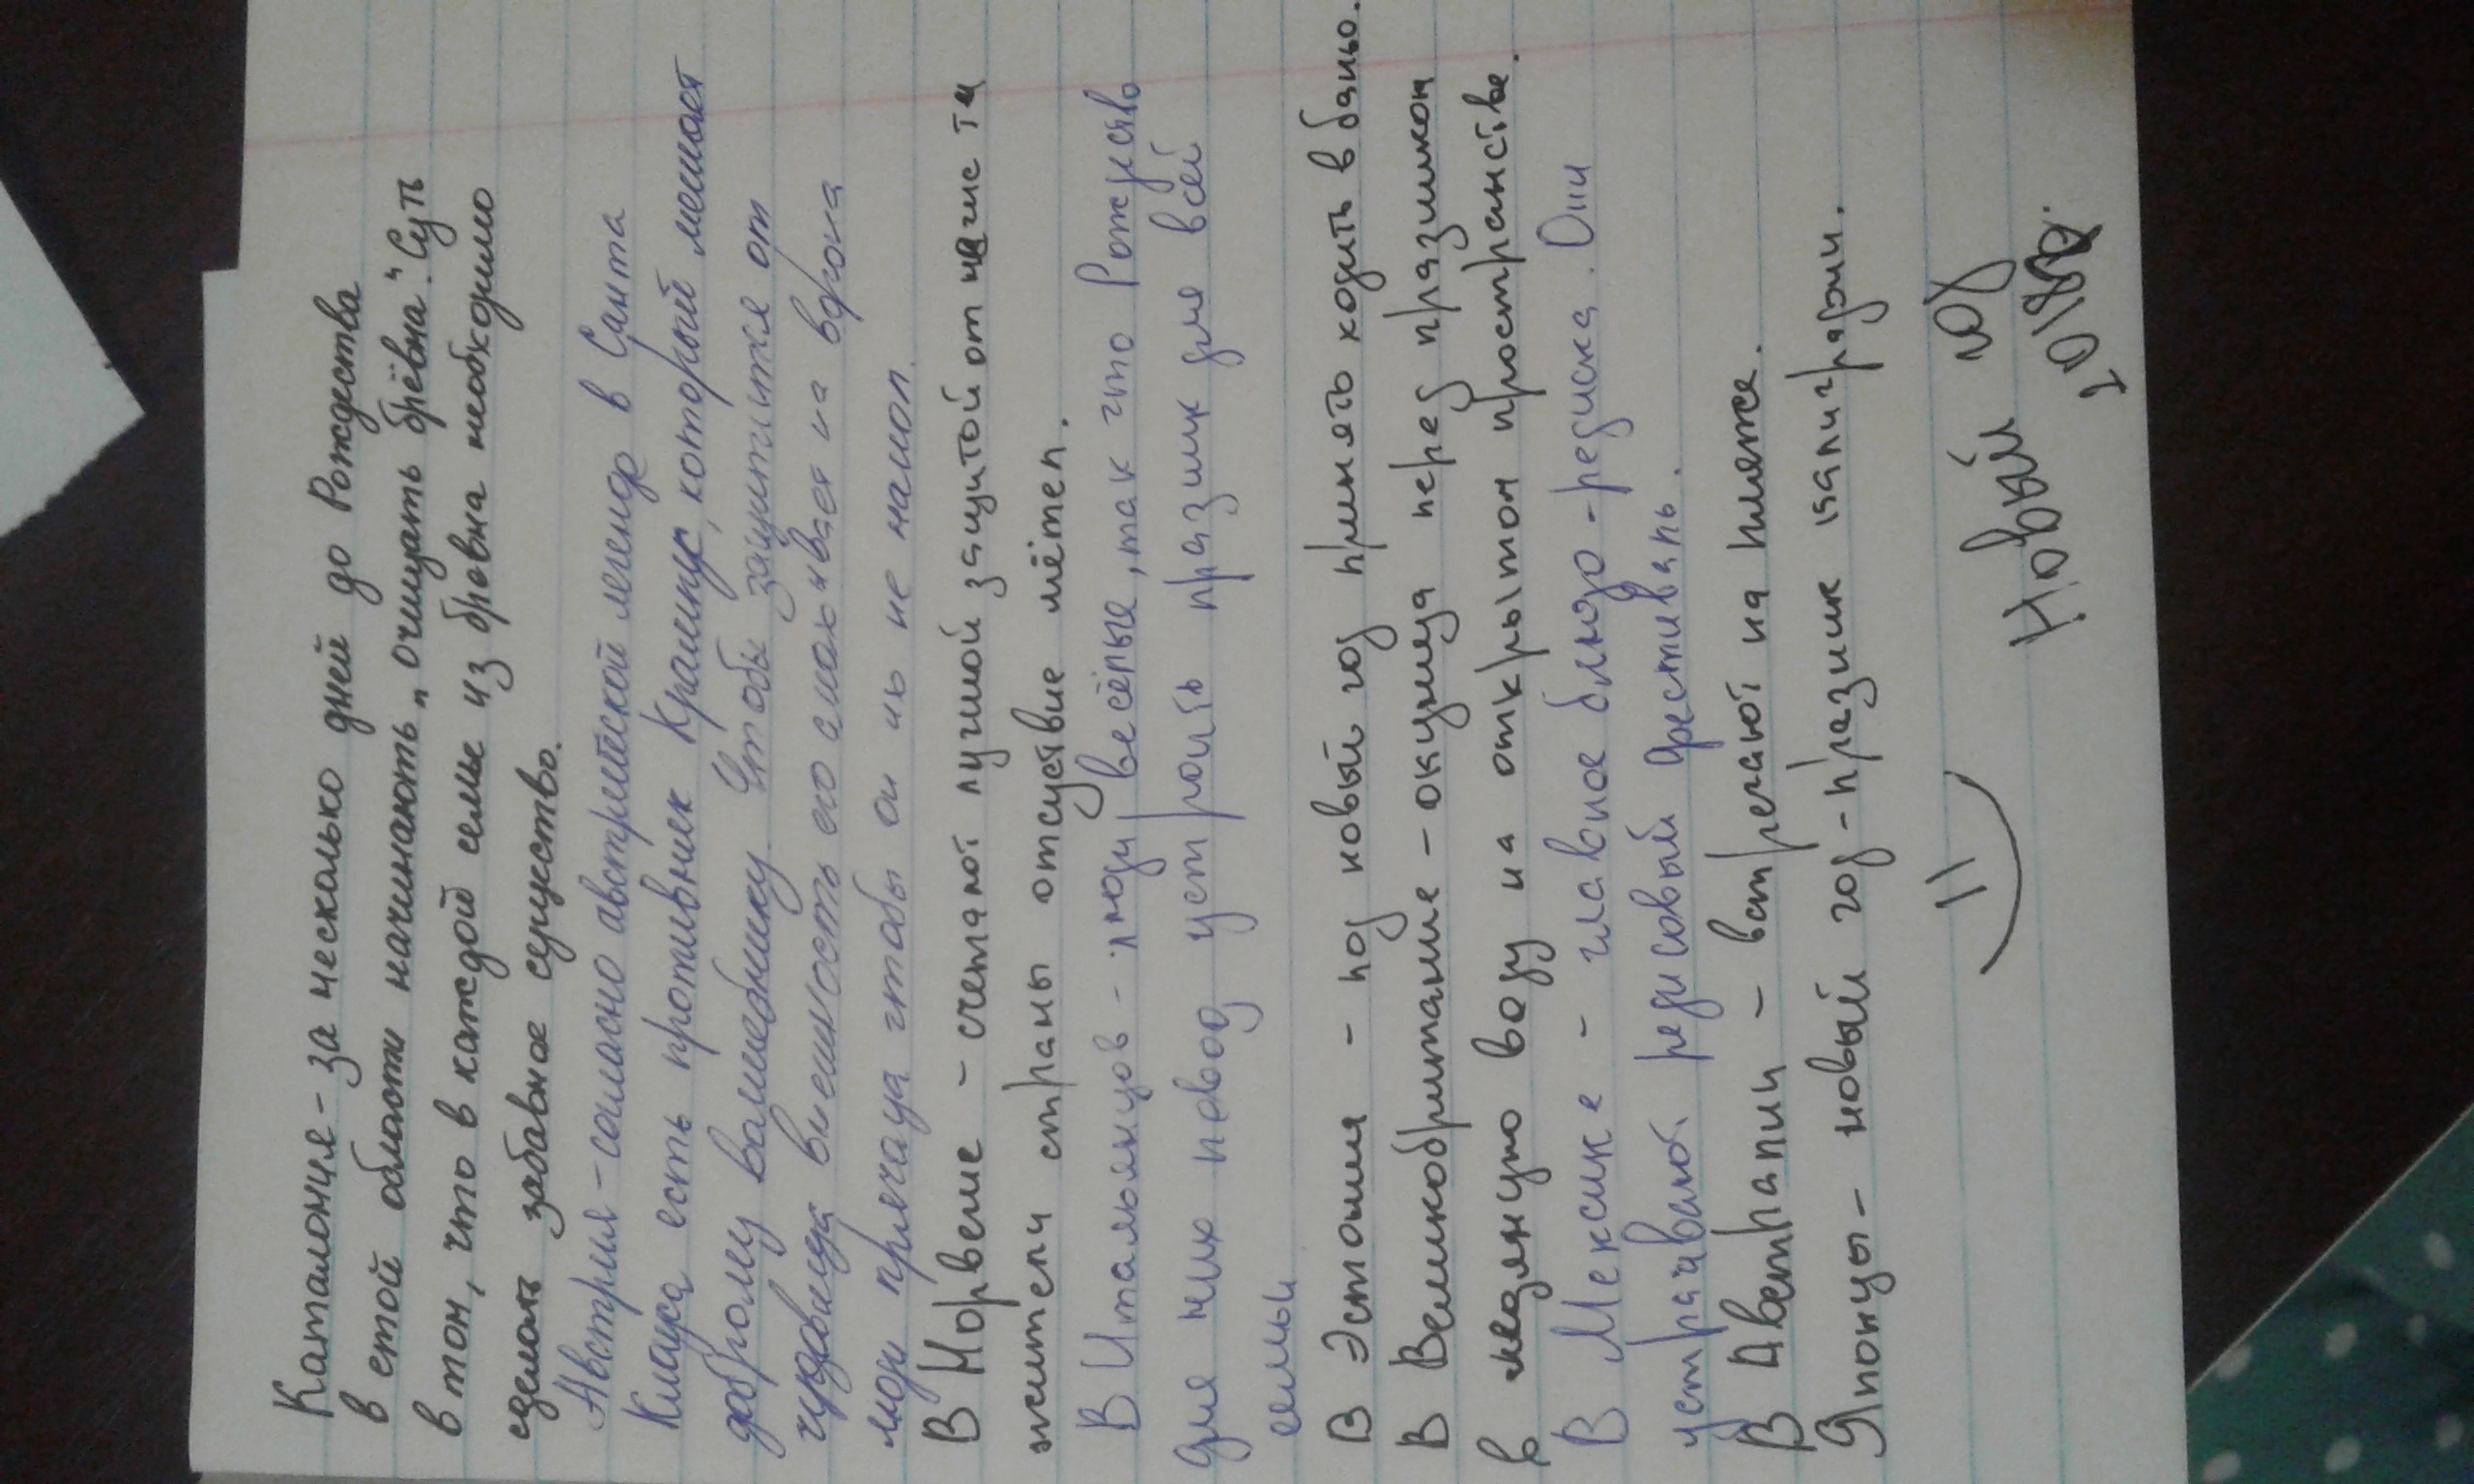 Каталония - за несколько дней до Рождества
в етой области начинають „очищать брёвна". Суть
в том, что в каждой семье из бревна необходимо
сделать забавное существо.
Австрия - согласно австрийской легенде в Санта
Клауса есть противник Крампус, который мешает
доброму волшебнику. Чтобы защитится от
чудовища внешность его
люди чтобы он их не нашол.
В Норвеие - счетают лучшой защитой от
жители страны отсуствие мётел.
В Итальянцов - люди весёлые, так что Рождество
для них повод устроить празник для всей
семьи
В Эстонии - под новый год принять ходить в баню.
В Великобритание - окунца перед празником
в ледянцую воду на открытом пространстве.
В Мексике - главное блюдо - редиска. Они
редисовый фестиваль.
В Австралии - встречают на пляже.
Японцы - новый год - празник калиграфии.
Новый год